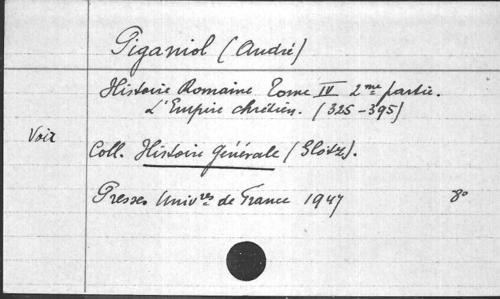 Piganiol (André)
Histoire Romaine Tome IV 2me partie.
L'Empire chrétien. (325-395)
Voir
Coll. Histoire Générale (Glotz).
Presses Univres de France 1947 8°